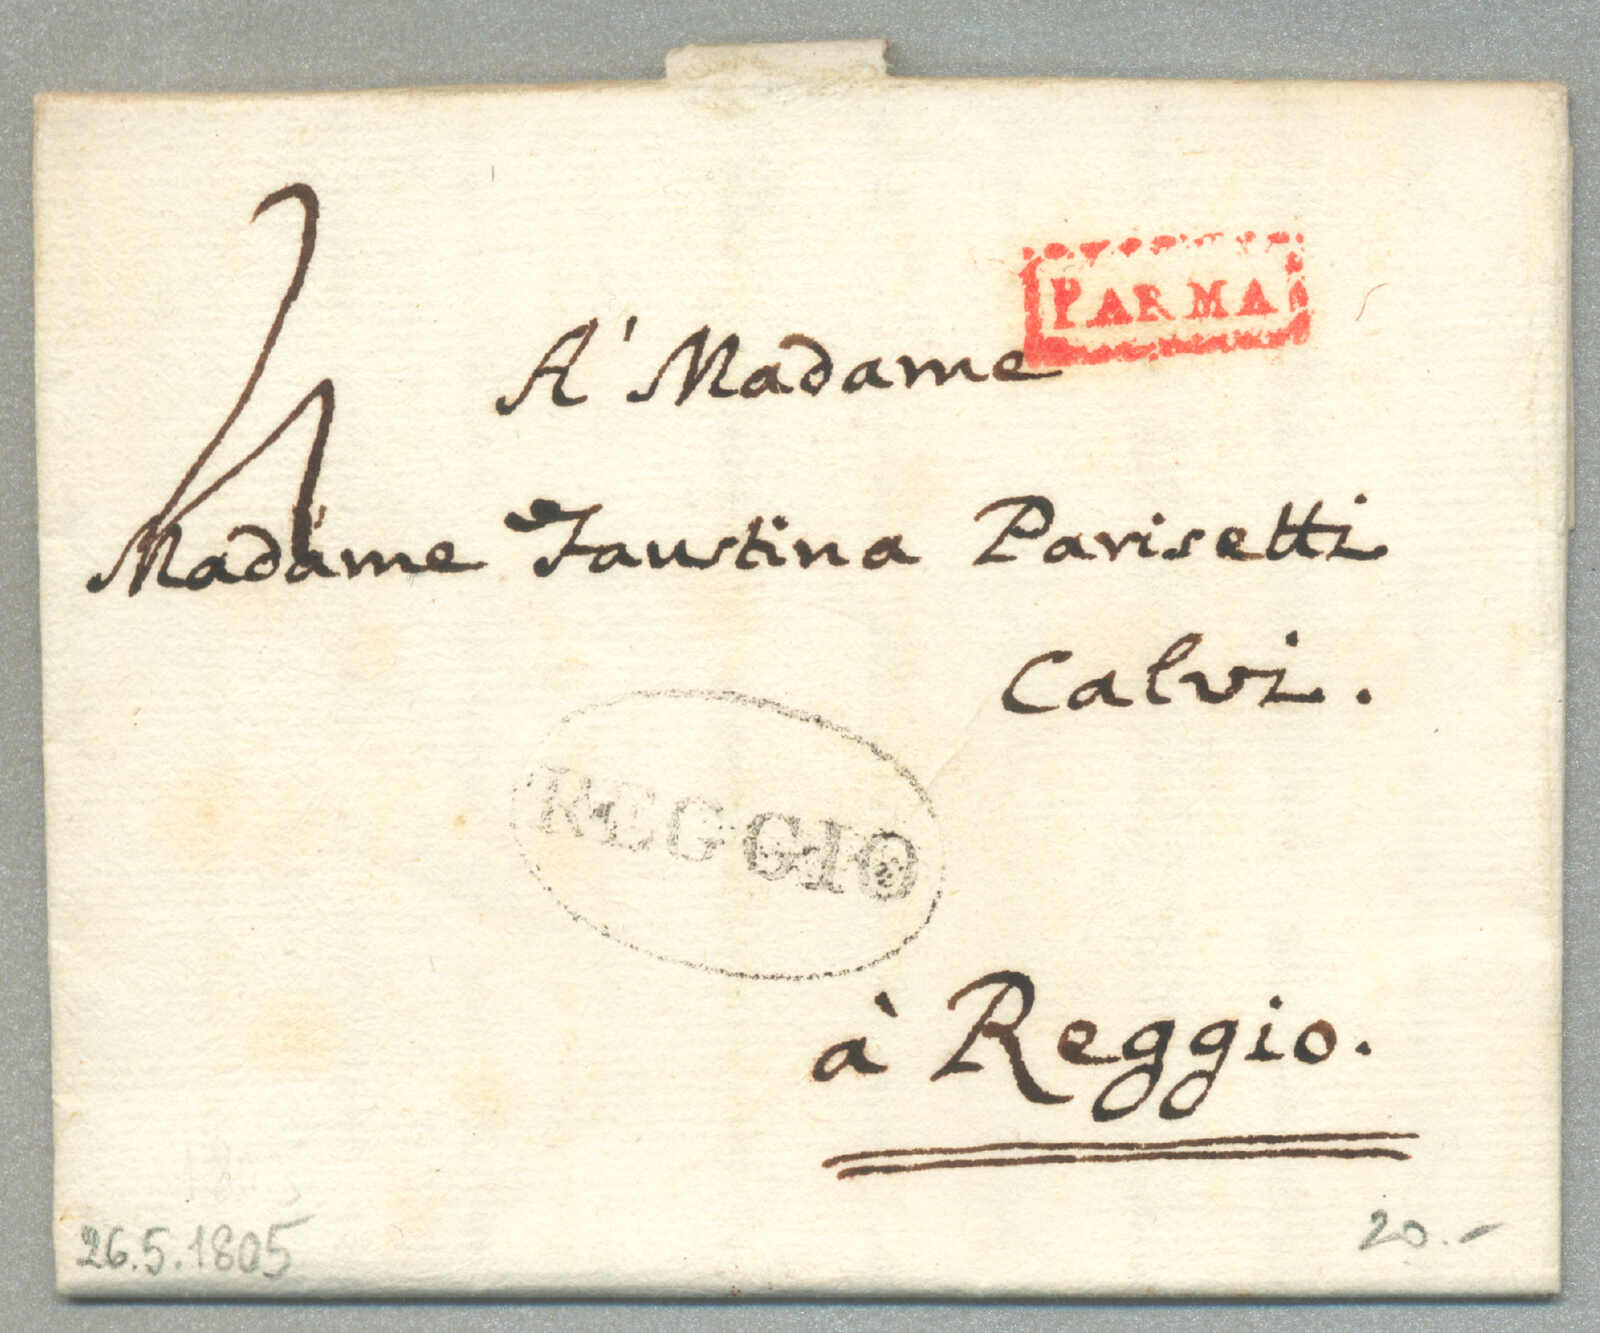 PARMA
A' Madame
Madame Faustina Parisetti
Calvi.
REGGIO
à Reggio.
26.5.1805
20.-